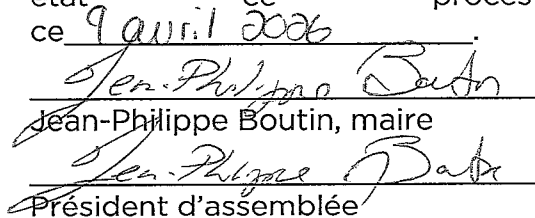 état ce procès
ce 9 avril 2026.
Jean-Philippe Boutin
Jean-Philippe Boutin, maire
Jean-Philippe Boutin
Président d'assemblée